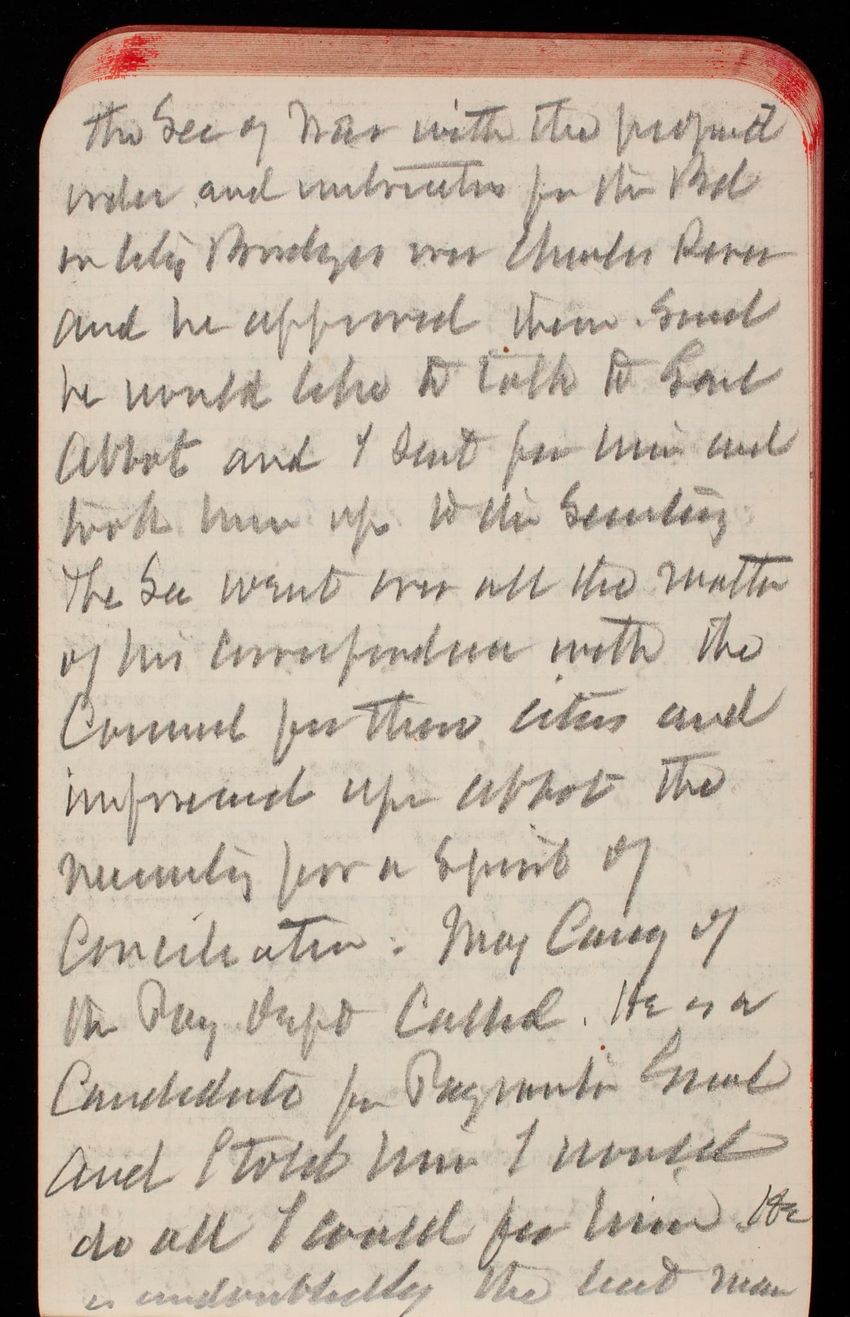 the Sec of War with the proposed
order and instructions for the Bd
on City Bridges over Charles River
and he approved them. Said
he would like to talk to Genl
Abbot and I sent for him and
took him up to the Secretary
The Sec went over all the matter
of his correspondence with the
Counsel for these cities and
impressed upon Abbot the
necessity for a spirit of
Conciliation. Maj Carey of
the Pay Dept Called. He is a
Candidate for Paymaster Genal
and I told him I would
do all I could for him. He
is undoubtedly the best man